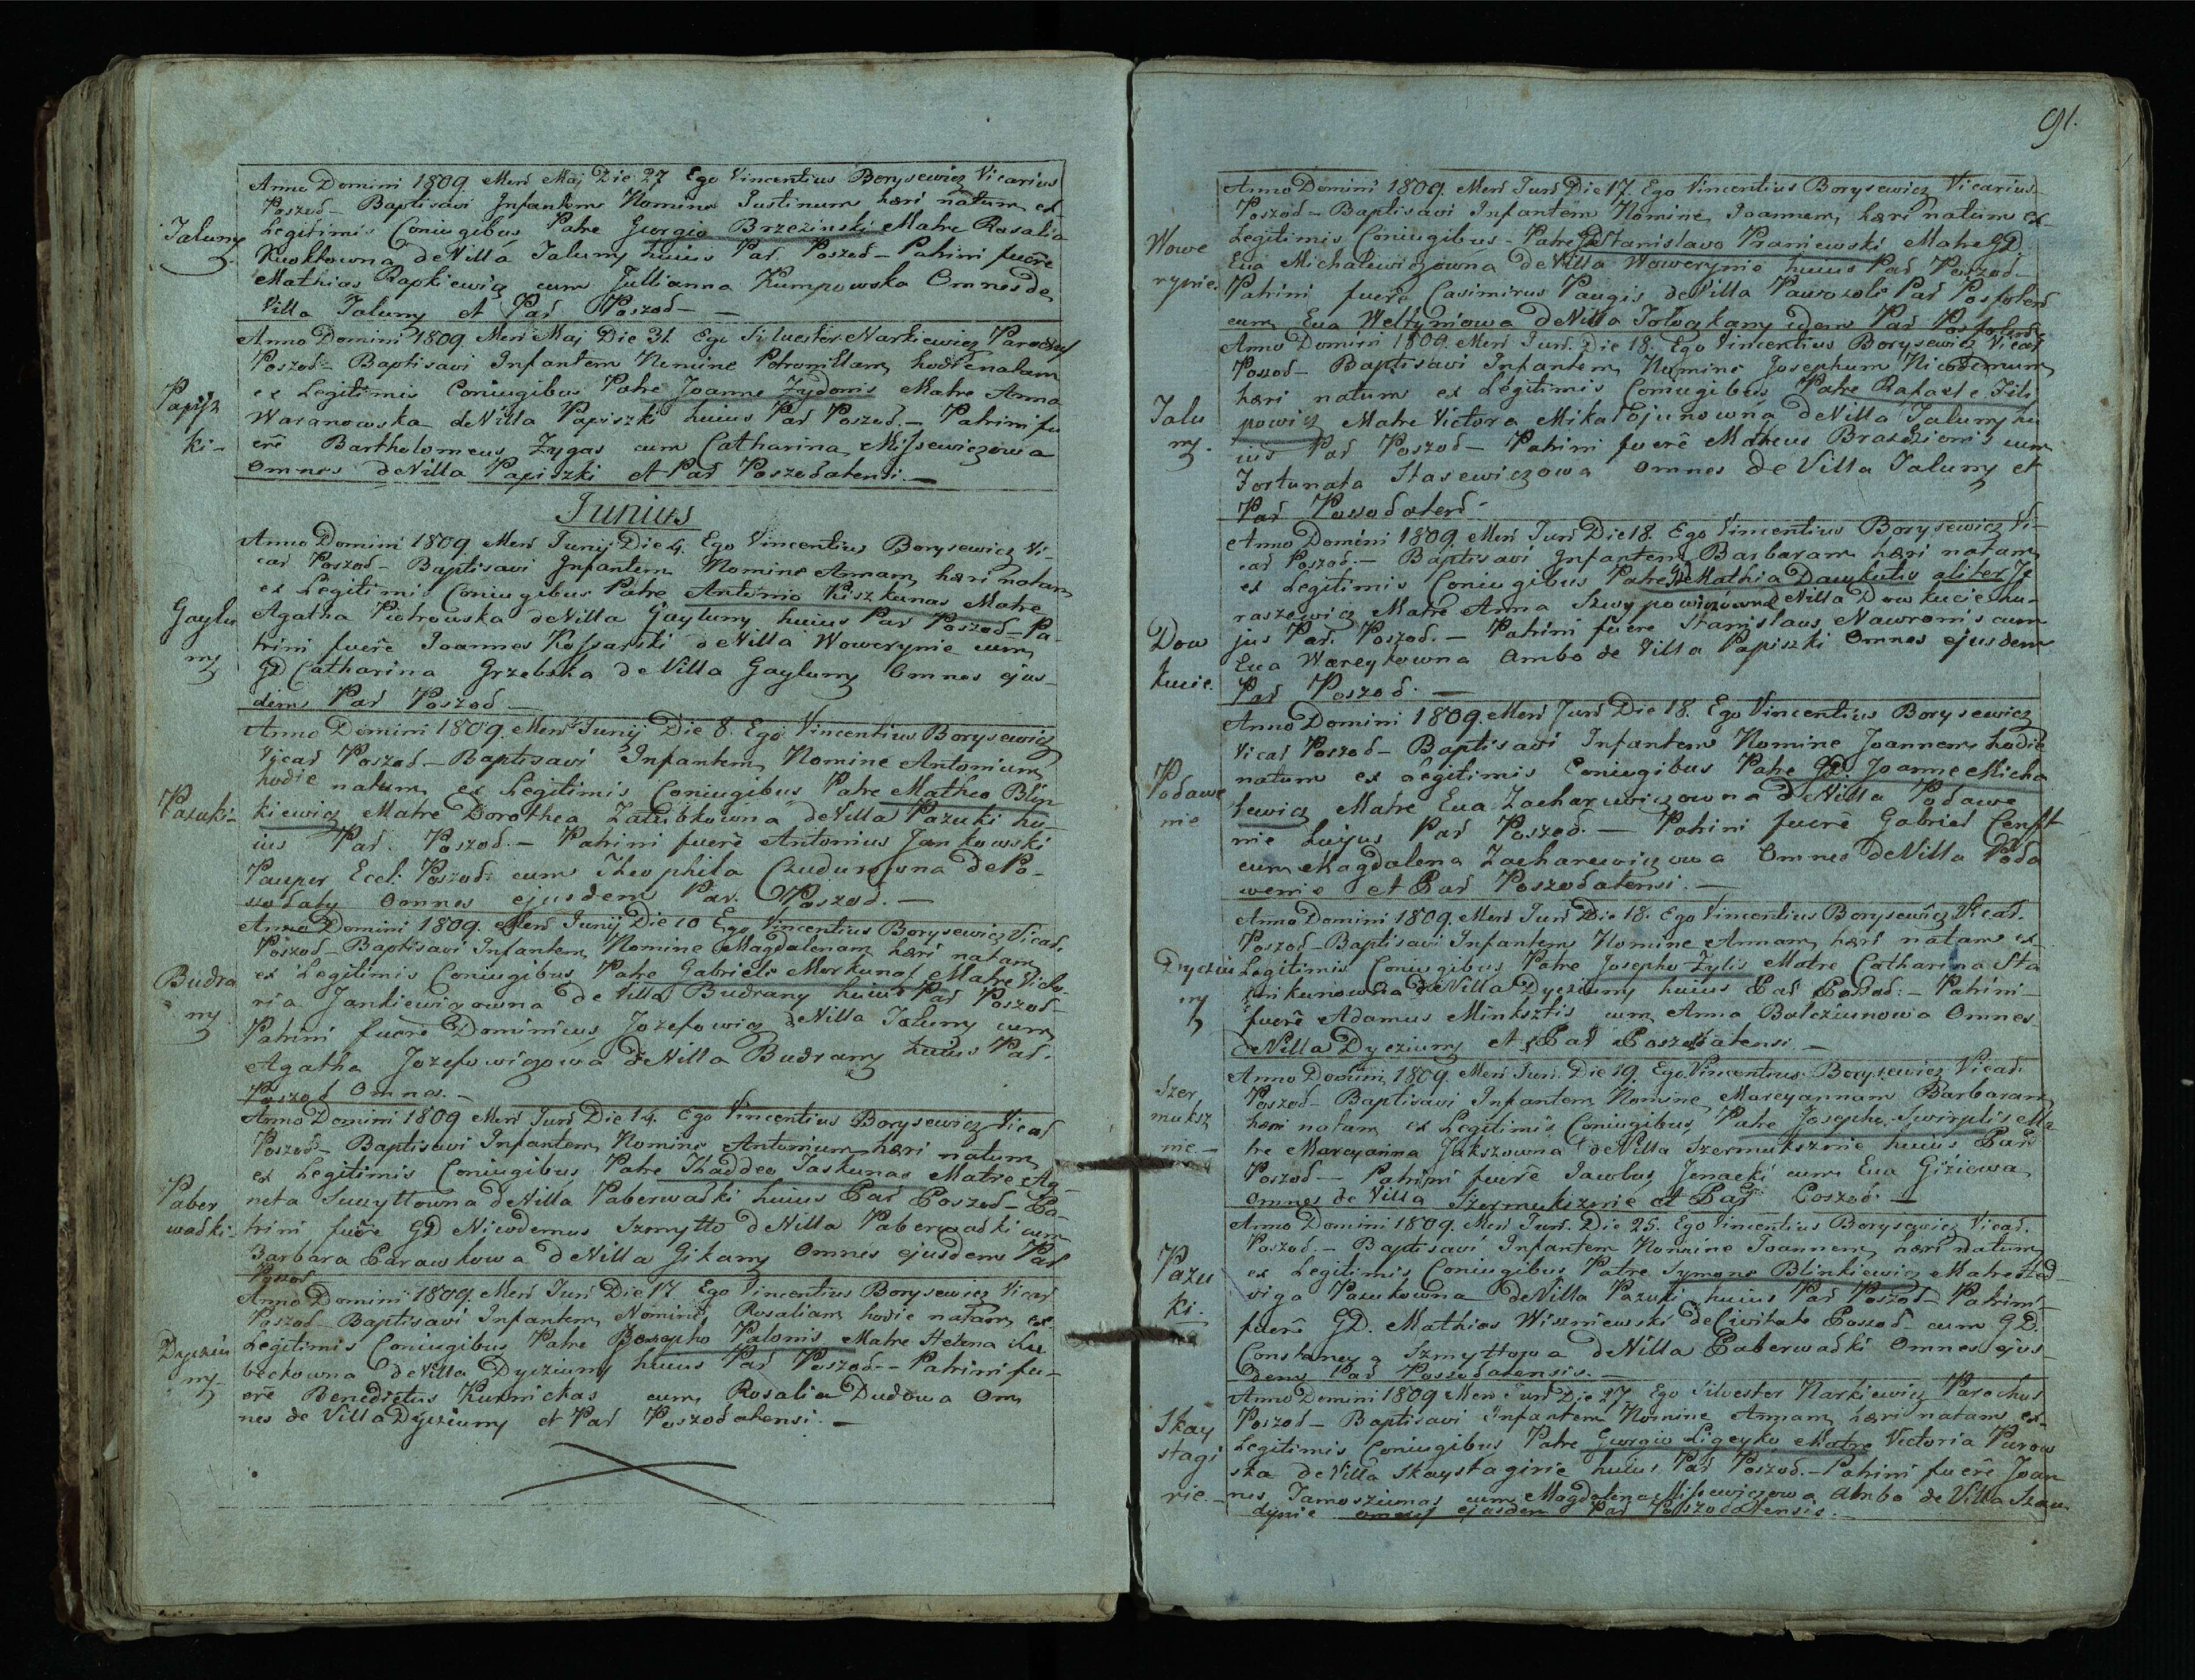 Anno Domini 1809. Mens Maj Die 27 Ego Vincentius Borysewicz Vicarius
Poszod- Baptisavi Infantem Nomine Justinum hæri natum ex
Jalumy Legitimis Coniugibus Patre Georgio Brzezinski Matre Rosalia
de Villa Jalumy huius Par Poszod- Patrini fuere
Mathias Rapkiewicz cum Jullianna Kumpowska Omnes de
Villa Jalumy et Par Poszod-
Anno Domini 1809 Mens Maj Die 31. Ego Silvester Narkiewicz Parochus
Poszod- Baptisavi Infantem Nomine Petronillam, hodie natam
Papisz ex Legitimis Coniugibus Patre Joanne Zydonis Matre Anna
ki- Waranowska de Villa Papiszki huius Par Poszod.- Patrini fu
ere Bartholomeus Zygas cum Catharina Missewiczowa
Omnes de Villa Papiszki et Par Poszodatensi.-
Junius
Anno Domini 1809. Mens Junij Die 4. Ego Vincentius Borysewicz Vi-
car Poszod- Baptisavi Infantem Nomine Annam, hæri natam
ex Legitimis Coniugibus Patre Antonio Kiszkunas Matre
Gaylu Agatha Piotrowska de Villa Gaylumy huius Par Poszod- Pa-
my trini fuere Joannes Kossarski de Villa Wowerynie cum
GD Catharina Grzebska de Villa Gaylumy Omnes ejus-
dem Par Poszod-
Anno Domini 1809. Mens Junij Die 8. Ego Vincentius Borysewicz
Vicar Poszod.- Baptisavi Infantem Nomine Antonium,
hodie natum ex Legitimis Coniugibus Patre Matheo Blin-
Pazuki- kiewicz Matre Dorothea Zalubkowna de Villa Pazuki hu-
ius Par. Poszod.- Patrini fuere Antonius Jankowski
Pauper Eccl: Poszod: cum Theophila Czudurowna de Po-
szodaty Omnes ejusdem Par. Poszod.-
Anno Domini 1809. Mens Junij Die 10 Ego Vincentius Borysewicz Vicar.
Poszod- Baptisavi Infantem Nomine Magdalenam hæri natam
Budra ex Legitimis Coniugibus Patre Gabriele Morkunas Matre Victo-
my ria Jankiewiczowna de Villa Budramy huius Par Poszod-
Patrini fuere Dominicus Jozefowicz de Villa Jalumy cum
Agatha Jozefowiczowa de Villa Budramy huius Par.
Poszod Omnes.-
Anno Domini 1809 Mens Juni Die 14. Ego Vincentius Borysewicz Vicar
Poszod- Baptisavi Infantem Nomine Antonium hæri natum
ex Legitimis Coniugibus Patre Thaddeo Jaskunas Matre Ag-
Paber neta de Villa Paberwadki huius Par Poszod- Pa-
wadki- trini fuere GD Nicodemus Szmytto de Villa Paberwadki cum
Barbara Parawkowa de Villa Gikamy Omnes ejusdem Par
Poszod
Anno Domini 1809. Mens Juni Die 17. Ego Vincentius Borysewicz Vicar
Poszod- Baptisavi Infantem Nomine Rosaliam, hodie natam ex-
Dyziu Legitimis Coniugibus Patre Josepho Palonis Matre Helena
my- de Villa Dycziumy huius Par Poszod- Patrini fu-
ere Benedictus Kurnickas cum Rosalia Dudowa Om
nes de Villa Dycziumy et Par Poszodatensi.-
91.
Anno Domini 1809. Mens Juni Die 17. Ego Vincentius Borysewicz Vicarius
Poszod- Baptisavi Infantem Nomine Joannem, hæri natum ex-
Wowe Legitimis Coniugibus- Patre GD Stanislavo Praniewski Matre GD
rynie. Eva Michalewiczowna de Villa Wowerynie huius Par Poszod-
Patrini fuere Casimirus Paugis de Villa Pawozole Par Posfolens
cum Eva Weltyniowa de Villa idem Par Posfolens
Anno Domini 1809. Mens Juni. Die 18. Ego Vincentius Borysewicz Vicar
Poszod- Baptisavi Infantem Nomine Josephum Nicodemum
hæri natum ex Legitimis Coniugibus Patre Rafaele Fili
Jalu powicz Matre Victora Mikalojunowna de Villa Jalumy hu
my. ius Par Poszod- Patrini fuere Matheus Brazdzionis cum
Fortunata Stasewiczowa Omnes de Villa Jalumy et
Par Poszodatens
Anno Domini 1809 Mens Juni Die 18. Ego Vincentius Borysewicz Vi-
car Poszod.- Baptisavi Infantem Barbaram hæri natam
ex Legitimis Coniugibus Patre GD Mathia Dawkutis aliter Je
raszewicz Matre Anna Szwypowiczowna de Villa Dowkucie hu-
Dow jus Par. Poszod.- Patrini fuere Stanislaus Nawronis cum
kucie. Eva Wareykowna Ambo de Villa Papiszki Omnes ejusdem
Par Poszod.-
Anno Domini 1809. Mens Juni Die 18. Ego Vincentius Borysewicz
Vicar Poszod- Baptisavi Infantem Nomine Joannem, hodie
Podawe natum ex Legitimis Coniugibus Patre GD. Joanne Micha
nie lewicz Matre Eva Zacharewiczowna de Villa Podawe
nie hujus Par Poszod.- Patrini fuere Gabriel Censt
cum Magdalena Zacharewiczowa Omnes de Villa Poda
wenie et Par Poszodatensi.-
Anno Domini 1809. Mens Juni Die 18. Ego Vincentius Borysewicz Vicar.
Poszod- Baptisavi Infantem Nomine Annam, hæri natam ex-
Dycziu Legitimis Coniugibus Patre Josepho Zylis Matre Catharina Sta
my de Villa Dycziumy huius Par Poszod:- Patrini-
fuere Adamus Minksztis cum Anna Balcziunowa Omnes-
de Villa Dycziumy et Par Poszodatensi.-
Anno Domini 1809. Mens Juni. Die 19. Ego Vincentius Borysewicz Vicar.
Szer Poszod- Baptisavi Infantem Nomine Maryannam Barbaram
muksz hæri natam ex Legitimis Coniugibus Patre Josepho Swirplis Ma
nie.- tre Maryanna Jakszowna de Villa Szermukszznie huius Par
Poszod- Patrini fuere Jacobus Jenacki cum Eva Giziowa
Omnes de Villa Szermukszznie et Par Poszod.-
Anno Domini 1809. Mens Juni. Die 25. Ego Vincentius Borysewicz Vicar.
Poszod.- Baptisavi Infantem Nomine Joannem, hæri natum
Pazu ex Legitimis Coniugibus Patre Symone Blinkiewicz Matre Hed-
ki. viga Pazukowna de Villa Pazuki huius Par Poszod- Patrini-
fuere GD. Mathias Wiszniewski de Civitate Poszod- cum GD.
Constancya Szmyttowa de Villa Paberwadki Omnes ejus-
dem Par Poszodatensis.-
Anno Domini 1809 Mens Juni Die 27 Ego Silvester Narkiewicz Parochus
Skay Poszod- Baptisavi Infantem Nomine Annam, hæri natam ex-
stagi Legitimis Coniugibus Patre Georgio Ligeyko Matre Victoria Purow
rie- ska de Villa Skaystagirie huius Par Poszod.- Patrini fuere Joan
nes Tamosziunas cum Magdalena Missewiczowa Ambo de Villa Szau
dynie omnes ejusdem Par Poszodatensis.-